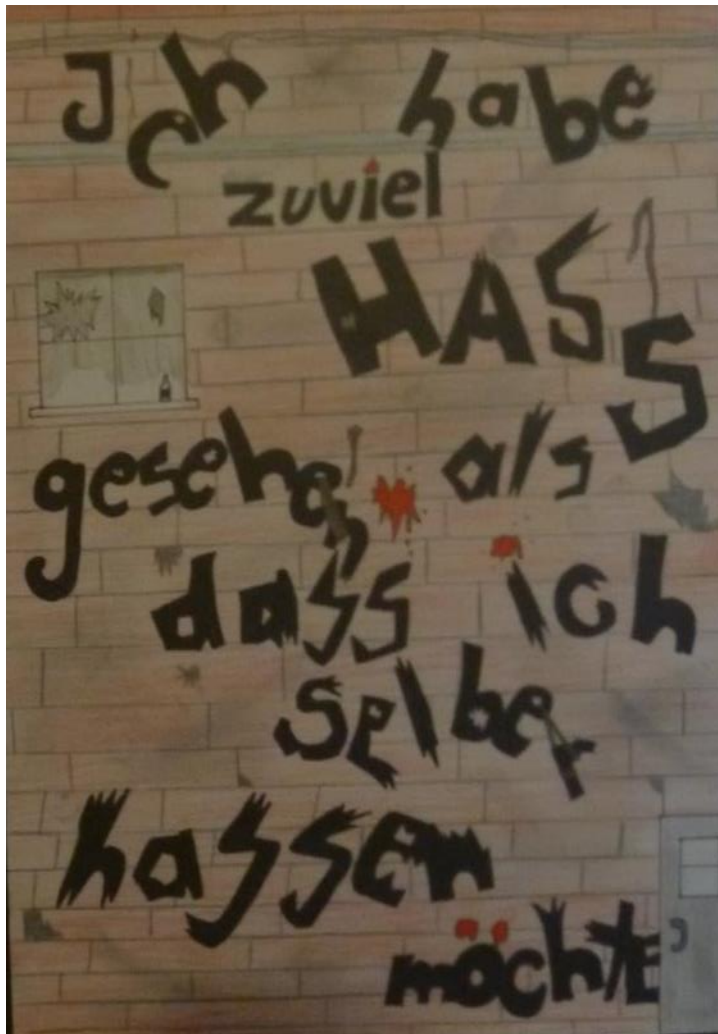 Ich habe
zuviel
HASS
gesehen als
dass ich
selber
hassen
möchte